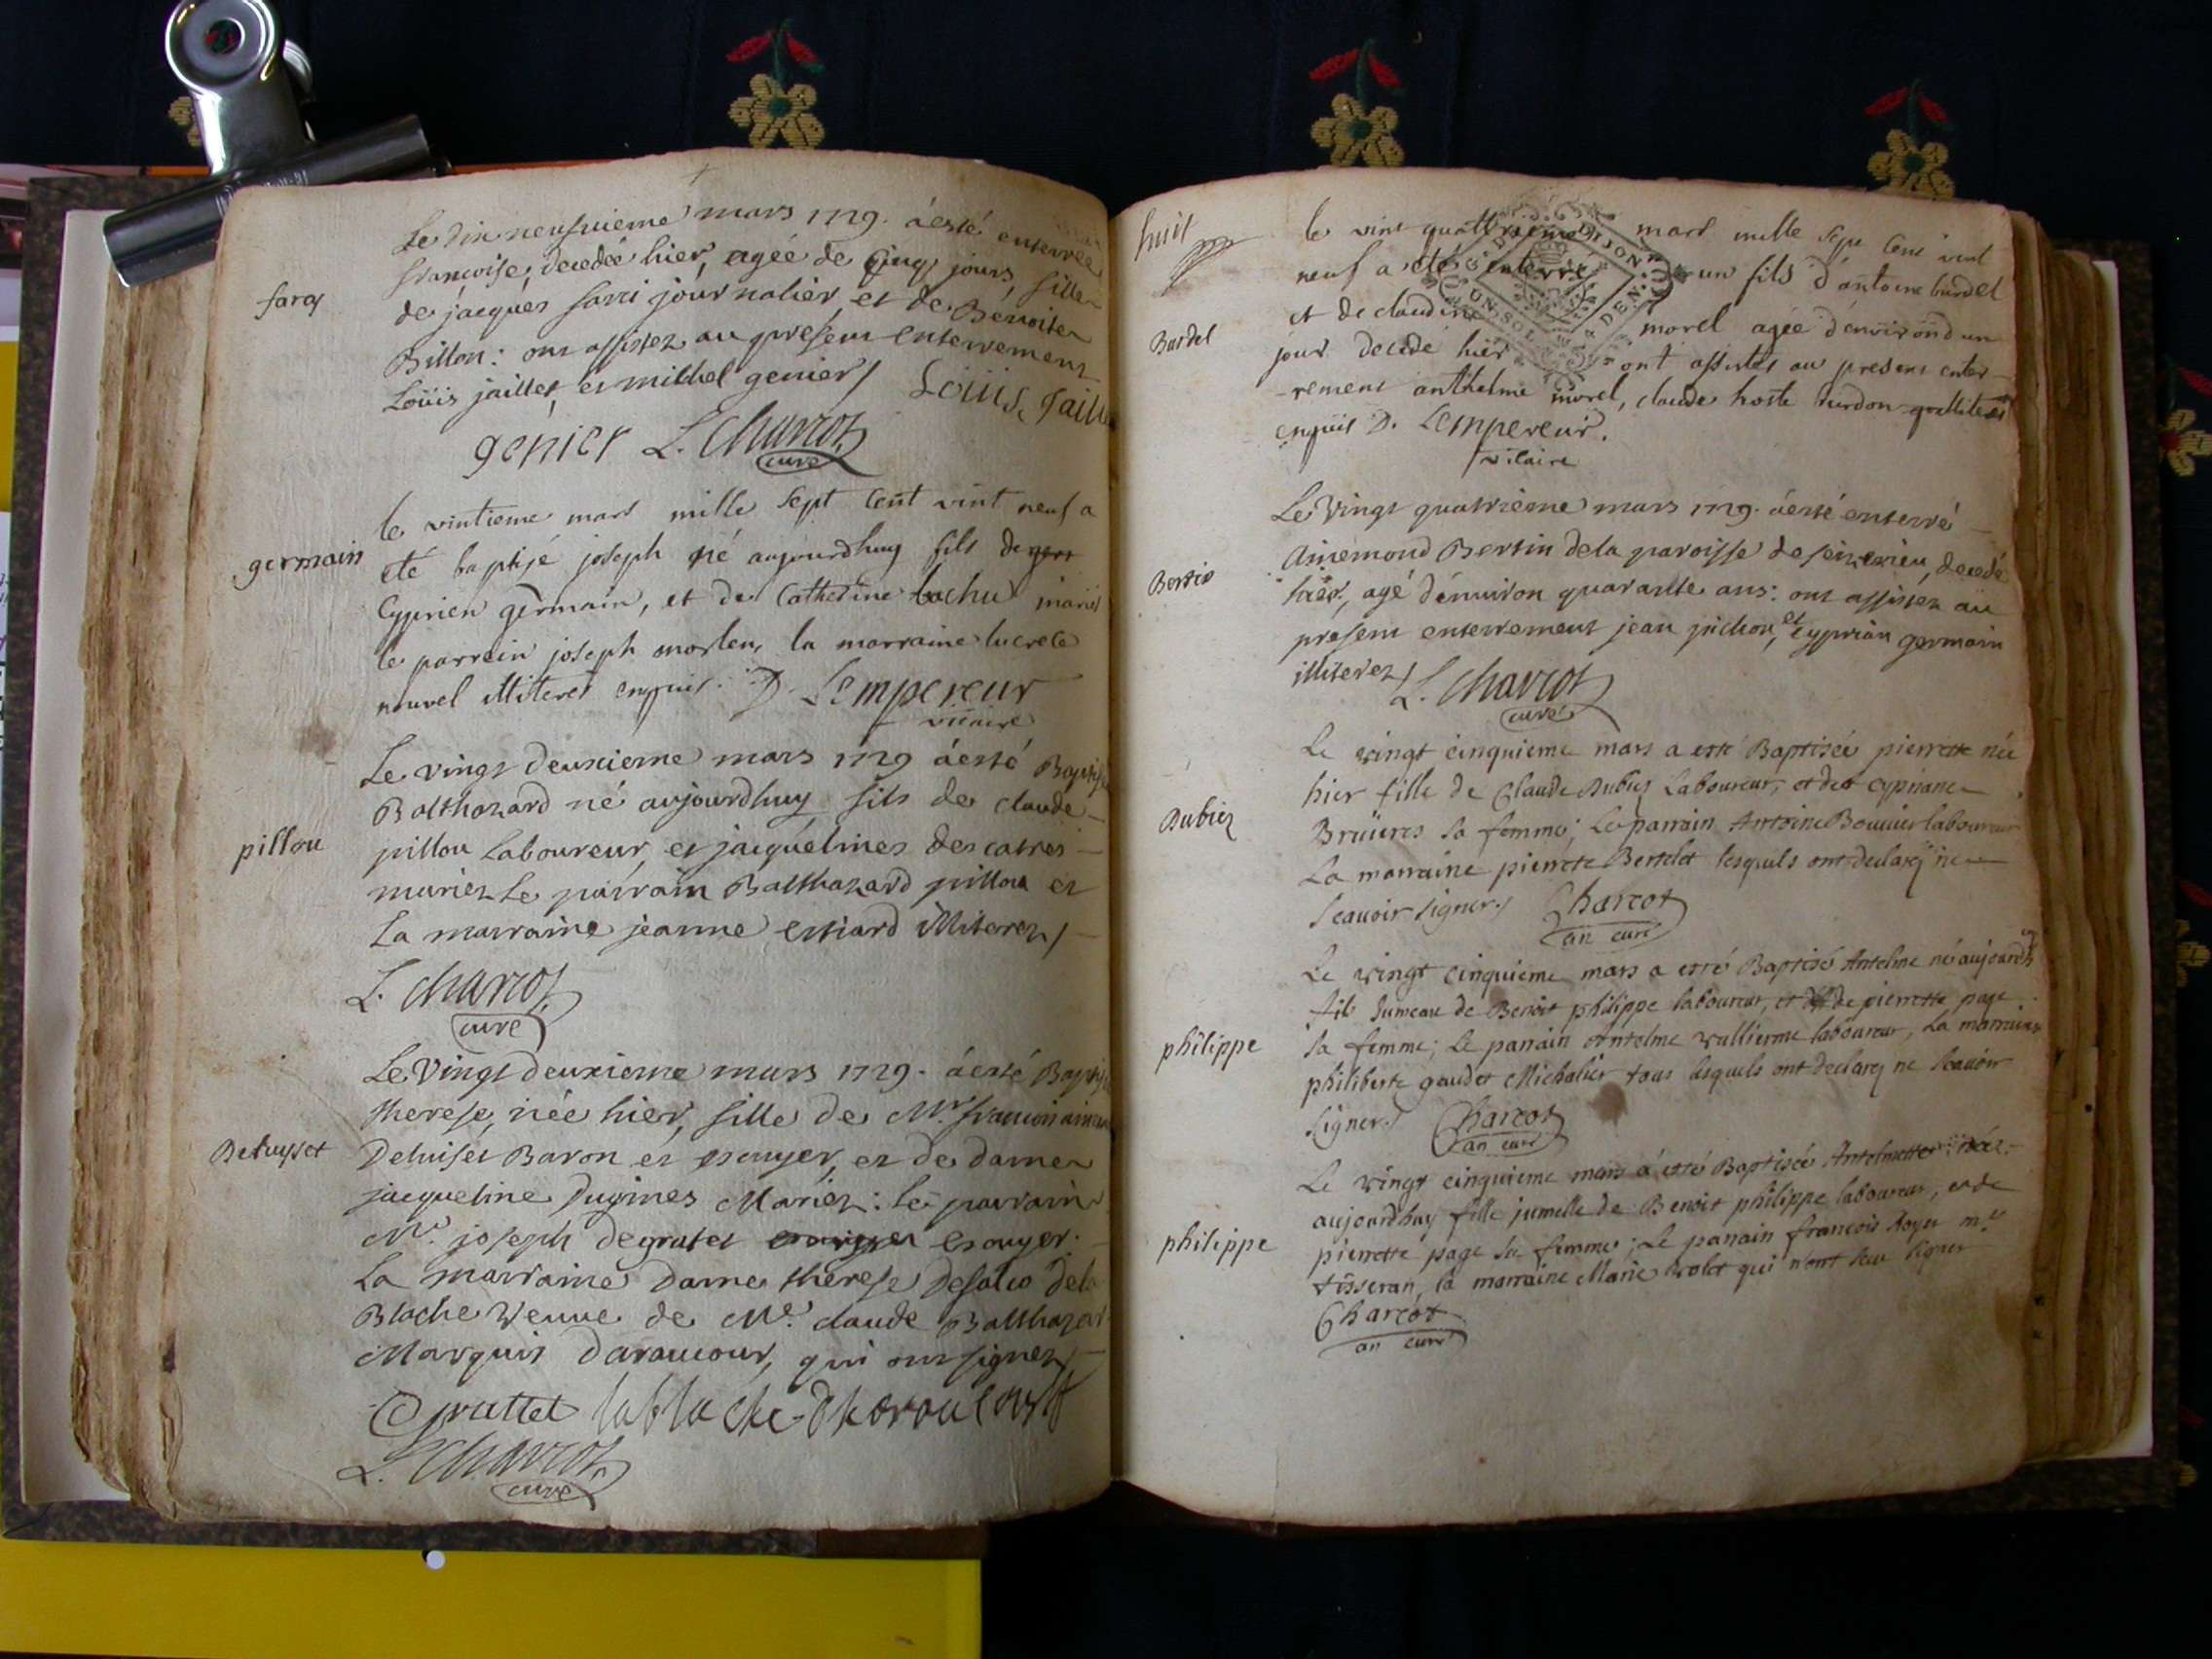 Le dix neufvieme mars 1729. a esté enterrée
francoise, decedée hier, agée de cinq jours, fille
farcy
de jacques farci journalier, et de Benoite
Billon: ont assistez au present enterrement
Loüis jaillet, et michel genier /
Loüis Jaillet
genier L. Charcot
curé
le vintieme mars mille sept cent vint neuf a
germain
eté baptisé joseph né aujourdhuy fils de
Cyprien germain, et de Catherine bochu mariés
le parrein joseph morlen, la marraine lucrece
nouvel illiterés enquis. D. Lempereur
vicaire
Le vingt deuxieme mars 1729 a esté Baptisé
Balthazard né aujourdhuy fils de claude
pillou
pillou Laboureur, et jacquéline des catres
mariez Le parrain Balthazard pillou et
La marraine jeanne estiard illiterez /
L. Charcot
curé
Le Vingt deuxieme mars 1729. a esté Baptisé
therese, née hier, fille de Mr. francois aimé
Deluysset
Deluiset Baron et escuyer, et de dame
jacqueline Dugines Mariez: le parrain
Mr. joseph degratet escuyer.
La marraine Dame therese Desalco dela
Blache veuve de Mr. claude Balthazart
Marquis daraucour, qui ont signez /
Grattet lablache dharaucourt
L. Charcot
curé
huit
le vint quattrieme mars mille sept cent vint
neuf a eté enterré un fils d'antoine burdel
Burdel
et de claudine morel agée d'environ un
jour decedé hier ont assistés au present enter-
-rement anthelme morel, claude hoste
enquis D. Lempereur.
vicaire
Le Vingt quatrième mars 1729. a esté enterré
Ainemond Bertin dela paroisse de, decedé
Bertin
hier, agé d'environ quarante ans: ont assistez au
present enterrement jean pichon, et cyprian germain
illiterez /
L. Charcot
curé
Le vingt cinquieme mars a esté Baptisée pierrette née
hier fille de Claude Dubiez Laboureur, et de cypriane
Dubiez
Brüieres sa femme; Le parrain Antoine Bouvier laboureur
La marraine pierrete Bertelet lesquels ont declaré ne
scauoir signer /
Charcot
an curé
Le vingt cinquieme mars a esté Baptisé Antelme né aujourdh
fils jumeau de Benoit philippe laboureur, et de pierrette page
philippe
sa femme; Le parrain Antelme vullierme laboureur, La marraine
philiberte gaudet Michalier tous lesquels ont declaré ne scauoir
signer /
Charcot
an curé
Le vingt cinquieme mars a esté Baptisée Antelmette née
aujourdhuy fille jumelle de Benoit philippe laboureur, et de
philippe
pierrette page sa femme; Le parrain francois Royer m.e
tisseran, la marraine Marie volet qui n'ont sceu signer
Charcot
an curé